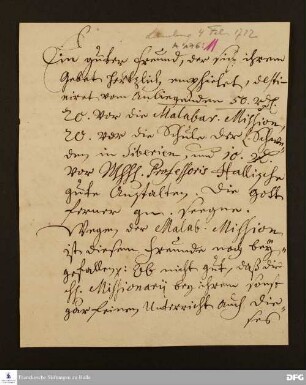 Hamburg 4 Febr. 1712
Ein guter Freund, der sich ihrem
Gebet hertzlich empfiehlet, desti-
niret vom Anliegenden 50. rthl.
20. vor die Malabar. Mission,
20. vor die Schule der Schwe-
den in Siberien, und 10.
vor Professoris Hallische
gute Anstalten. Die Gott
ferner seegne.
Wegen der Malab. Mission
ist diesem Freunde noch bey-
gefallen: Ob nicht gut, daß die
Missionarii bey ihrem sonst
gar feinen Unterricht auch die-
ses
Franckesche Stiftungen zu Halle
DFG